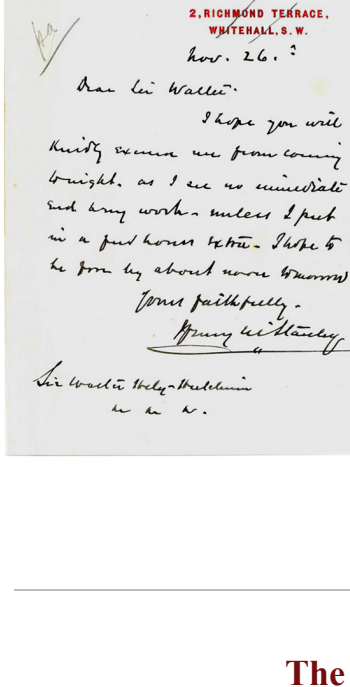 2, RICHMOND TERRACE,
WHITEHALL, S. W.
Nov. 26.
Dear Sir Walter.
I hope you will
kindly excuse me from coming
tonight. as I see no immediate
end my work - unless I put
in a few hours extra - I hope to
be free by about noon tomorrow
Yours faithfully -
Henry M Stanley
Sir Walter Hely-Hutchinson
The